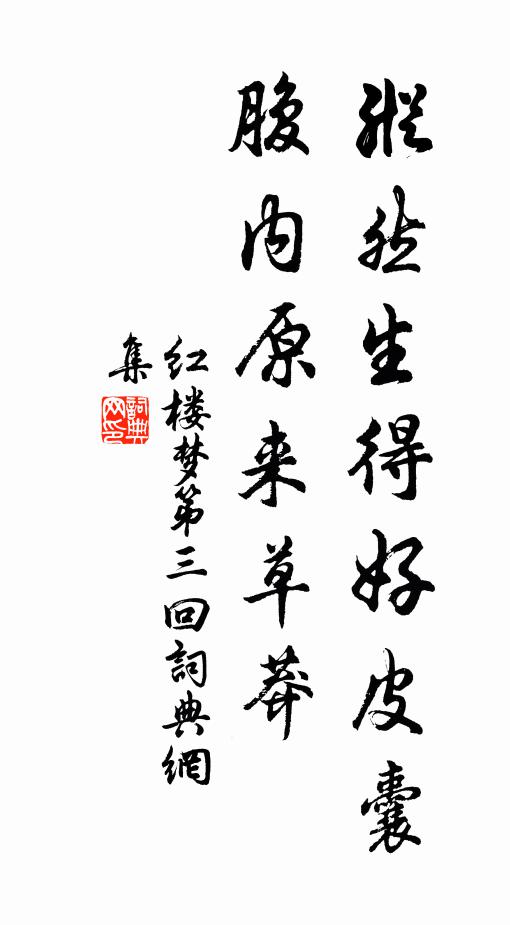 縱然生得好皮囊
腹内原来草莽
红楼梦第三回詞典網
集
詞典
网印